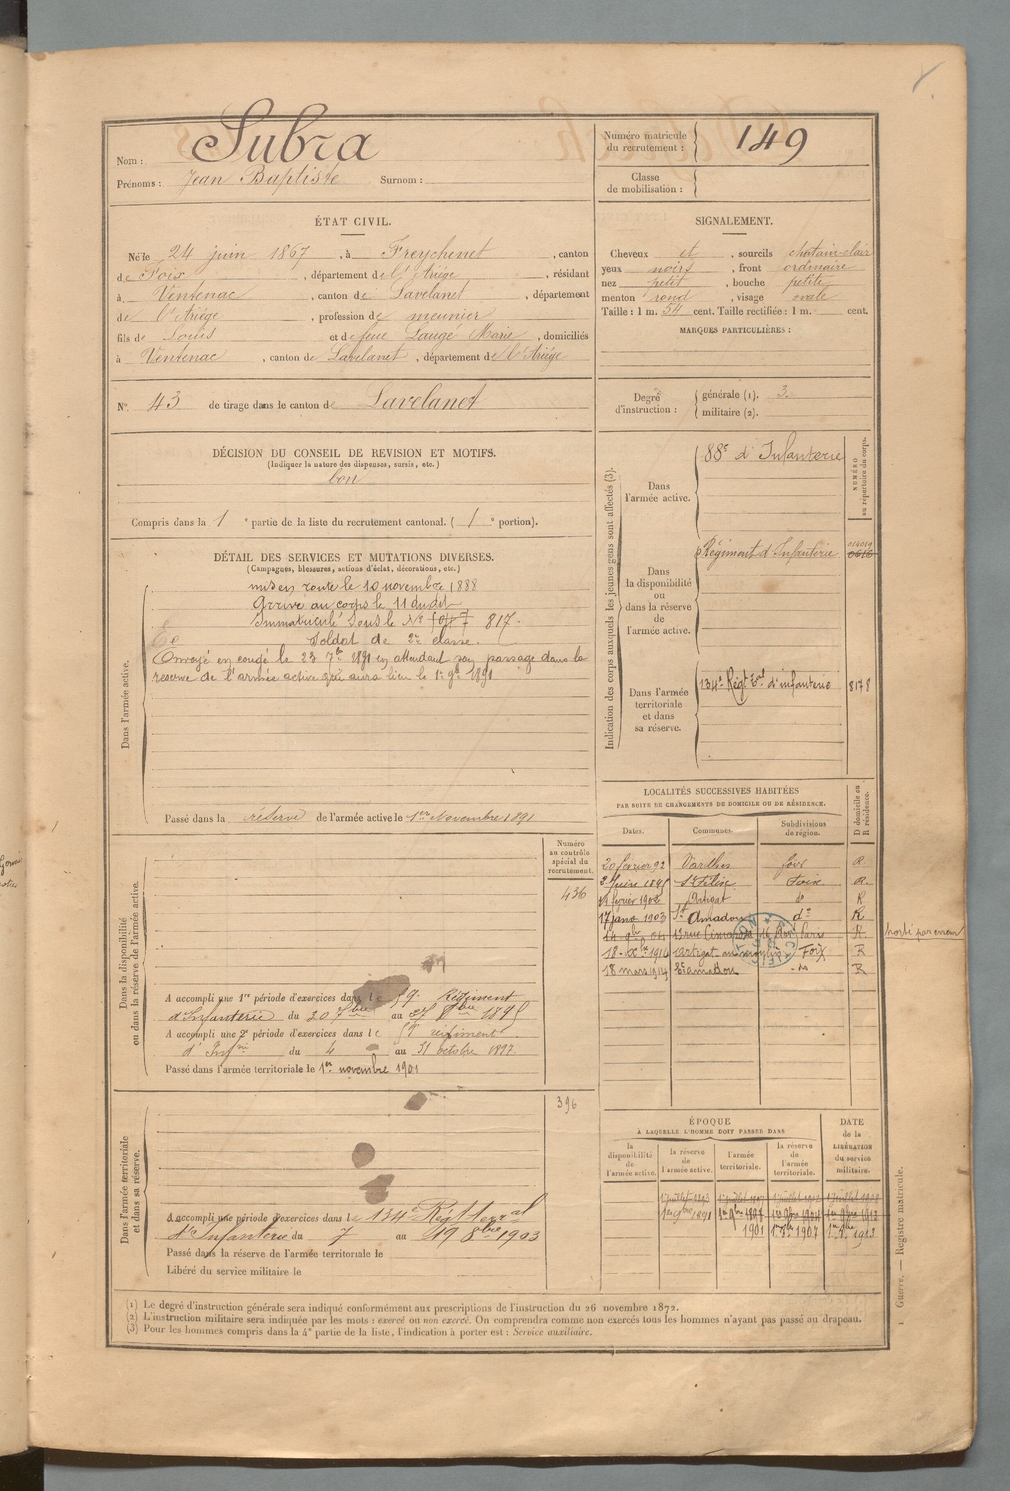 Nom : Subra
Prénoms : Jean Baptiste Surnom :
Numéro matricule du recrutement : 149
Classe de mobilisation :
ÉTAT CIVIL.
Né le 24 juin 1867, à Freychenet, canton
de Foix, département de l'Ariège, résidant
à Ventenac, canton de Lavelanet, département
de l'Ariège, profession de meunier
fils de Louis et de feue Laugé Marie, domiciliés
à Ventenac, canton de Lavelanet, département de l'Ariège
N° 43 de tirage dans le canton de Lavelanet
SIGNALEMENT.
Cheveux et, sourcils chatain-clair
yeux noirs, front ordinaire
nez petit, bouche petite
menton rond, visage ovale
Taille : 1 m. 54 cent. Taille rectifiée : 1 m. cent.
MARQUES PARTICULIÈRES :
Degré d'instruction : générale (1). 3.
militaire (2).
DÉCISION DU CONSEIL DE REVISION ET MOTIFS.
(Indiquer la nature des dispenses, sursis, etc.)
bon
Compris dans la 1e partie de la liste du recrutement cantonal. ( 1e portion).
DÉTAIL DES SERVICES ET MUTATIONS DIVERSES.
(Campagnes, blessures, actions d'éclat, décorations, etc.)
Dans l'armée active.
mis en route le 10 novembre 1888
Arrivé au corps le 11 dudit
Immatriculé sous le N° 817.
Soldat de 2e classe.
Envoyé en congé le 23 7bre 1891 en attendant son passage dans la
réserve de l'armée active qui aura lieu le 1er 9bre 1891
Passé dans la réserve de l'armée active le 1er Novembre 1891
Indication des corps auxquels les jeunes gens sont affectés (3).
NUMÉRO au répertoire du corps.
Dans l'armée active.
88e d'Infanterie
Dans la disponibilité ou dans la réserve de l'armée active.
Régiment d'Infanterie
Dans l'armée territoriale et dans sa réserve.
134e Régt Tal d'infanterie 8178
LOCALITÉS SUCCESSIVES HABITÉES
PAR SUITE DE CHANGEMENTS DE DOMICILE OU DE RÉSIDENCE.
Dates. Communes. Subdivisions de région. D domicile ou R résidence.
20 février 92 Varilhes foix R
Juin 1895 St Félix Foix R.
février 1902 Artigat do R
17 janv 1903 St Amadou do R
13 rue Paris R
18 Xbre 1914 Artigat Foix R
18 mars 1914 St Amadou R
porté par erreur
Dans la disponibilité ou dans la réserve de l'armée active.
Numéro au contrôle spécial du recrutement.
436
A accompli une 1re période d'exercices dans le 59e Régiment
d'Infanterie du 20 7bre au 8bre 1895
A accompli une 2e période d'exercices dans le 59e régiment
d'Infie du 4 au 31 octobre 1897
Passé dans l'armée territoriale le 1er novembre 1901
Dans l'armée territoriale et dans sa réserve.
396
A accompli une période d'exercices dans le 134e Régt territal
d'Infanterie du 7 au 19 8bre 1903
Passé dans la réserve de l'armée territoriale le
Libéré du service militaire le
ÉPOQUE
À LAQUELLE L'HOMME DOIT PASSER DANS
la disponibilité de l'armée active. la réserve de l'armée active. l'armée territoriale. la réserve de l'armée territoriale. DATE de la LIBÉRATION du service militaire.
1er 9bre 1891 1er 9bre 1897
1901 1er 9bre 1907 1er 9bre 1913
(1) Le degré d'instruction générale sera indiqué conformément aux prescriptions de l'instruction du 26 novembre 1872.
(2) L'instruction militaire sera indiquée par les mots : exercé ou non exercé. On comprendra comme non exercés tous les hommes n'ayant pas passé au drapeau.
(3) Pour les hommes compris dans la 4e partie de la liste, l'indication à porter est : Service auxiliaire.
1 Guerre. — Registre matricule.